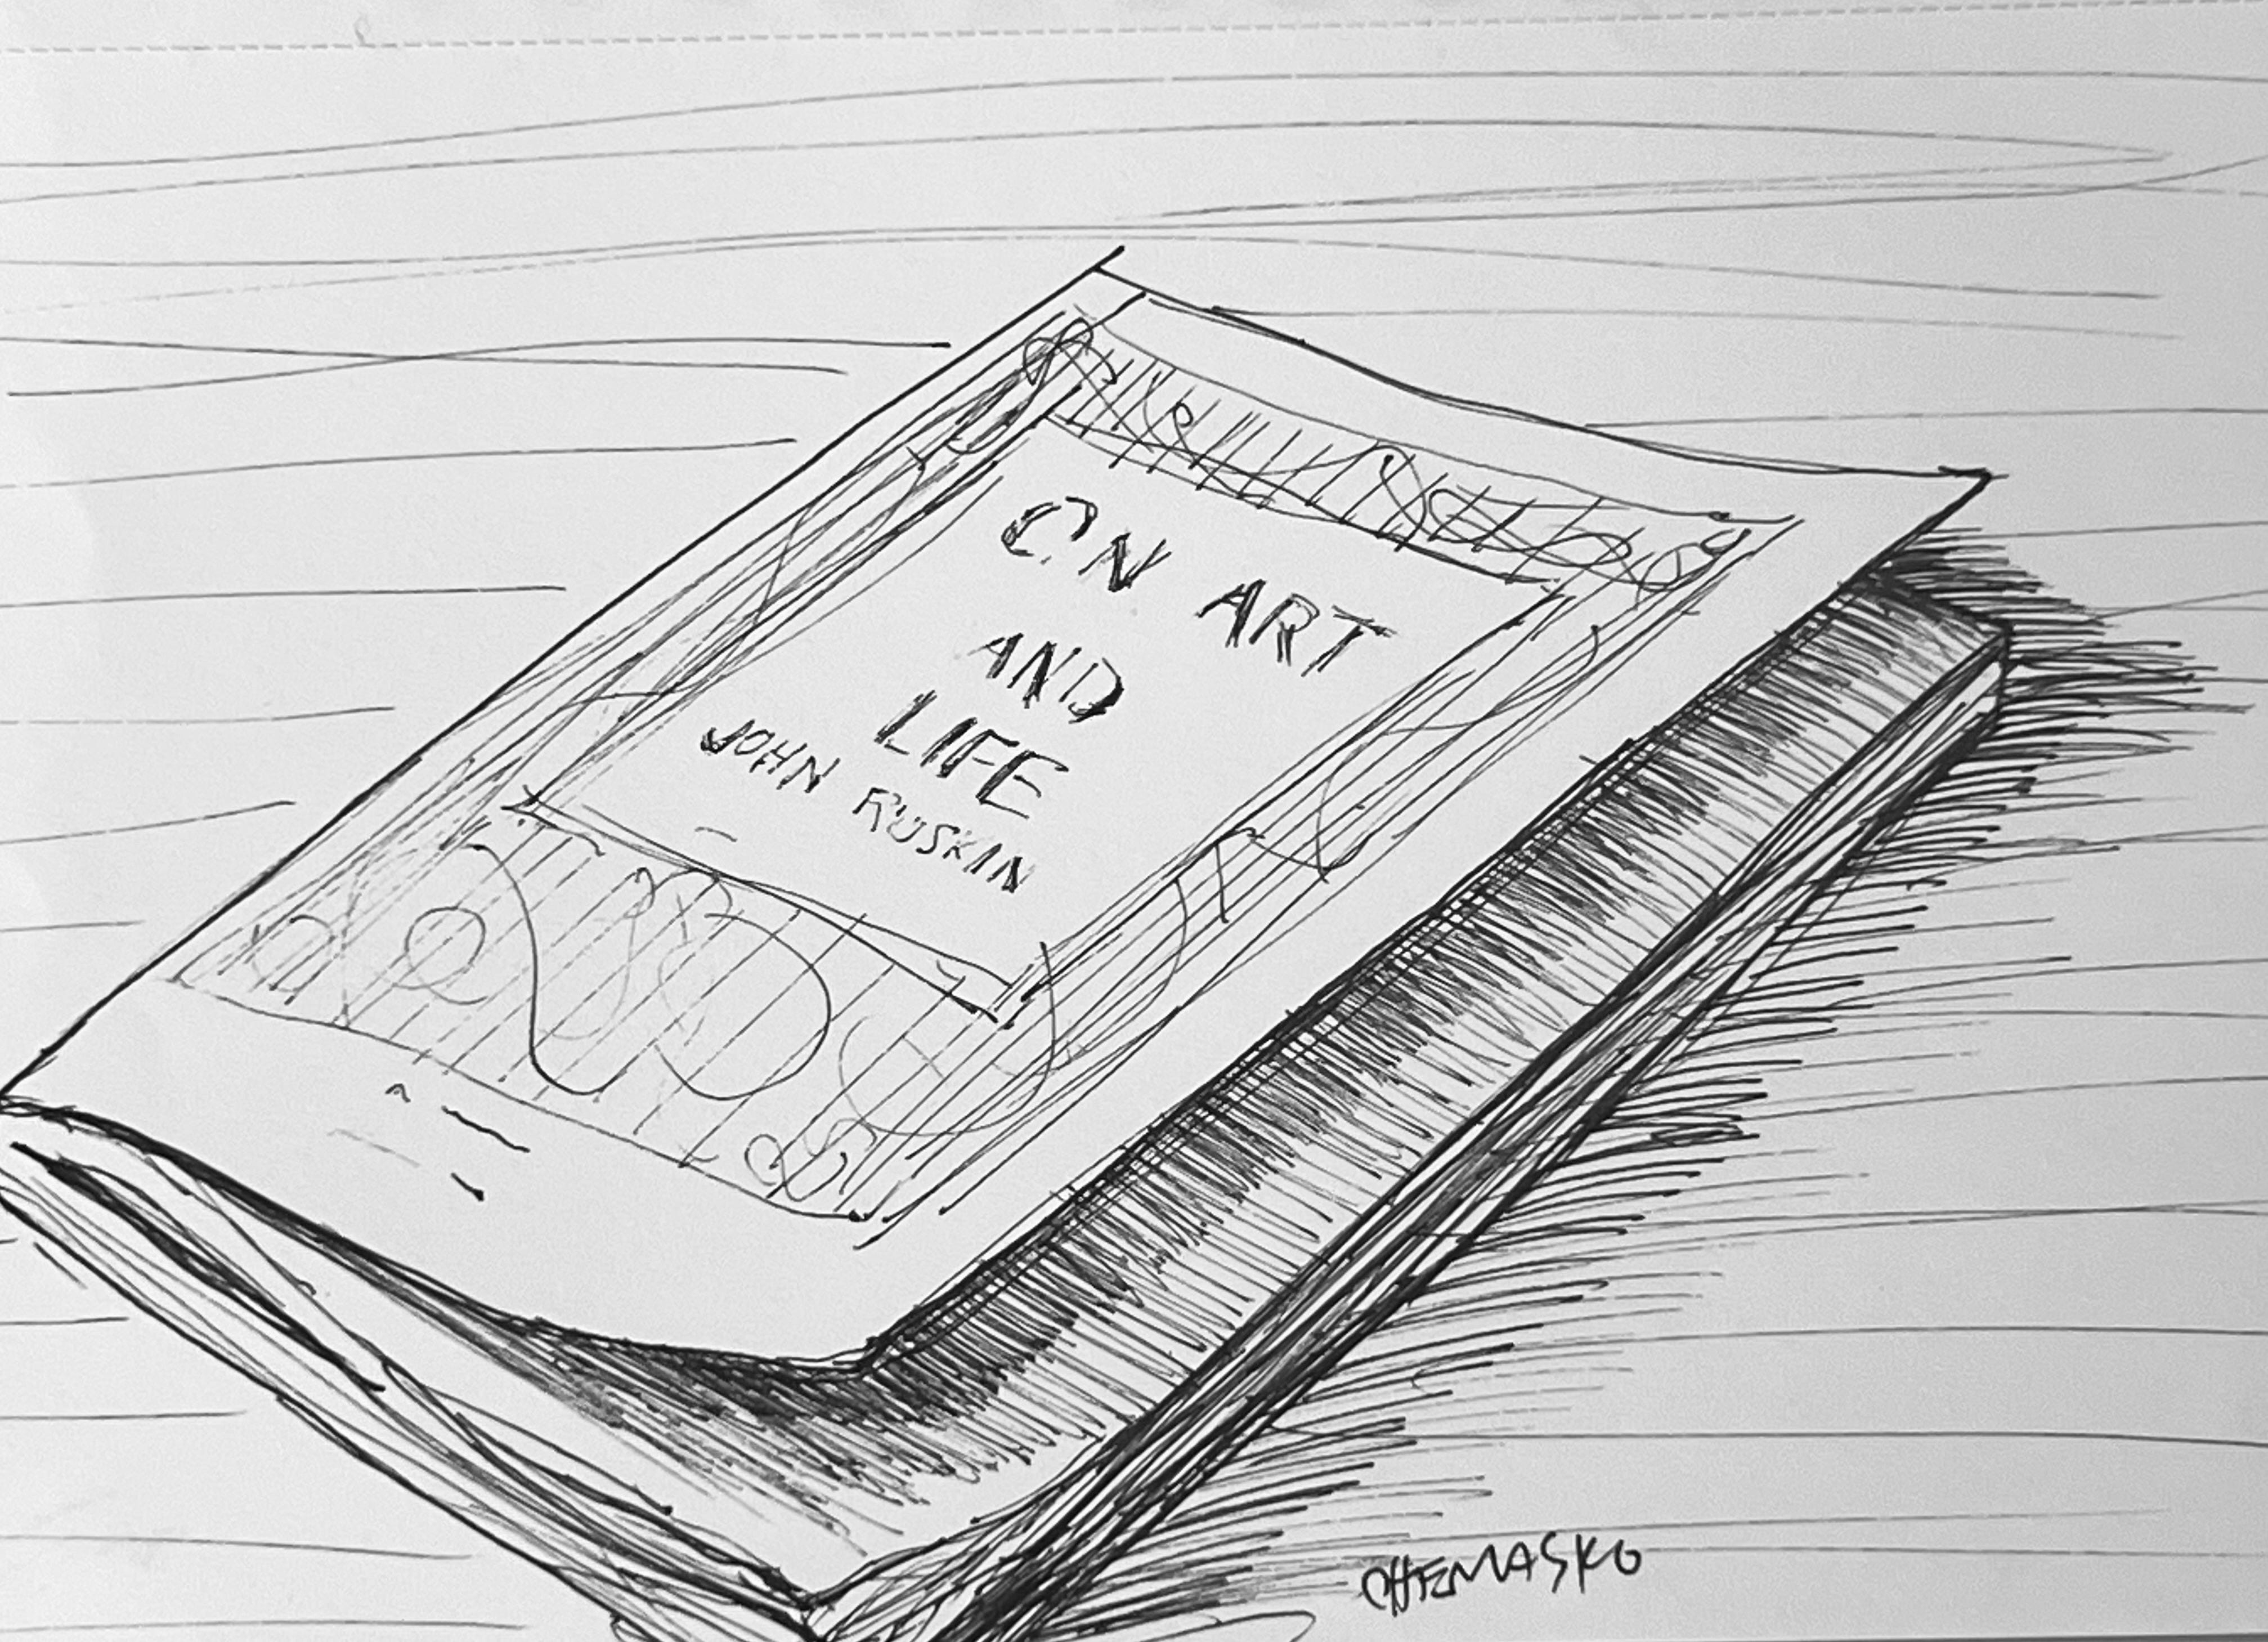 ON ART
AND
LIFE
JOHN RUSKIN
CHEMASKO